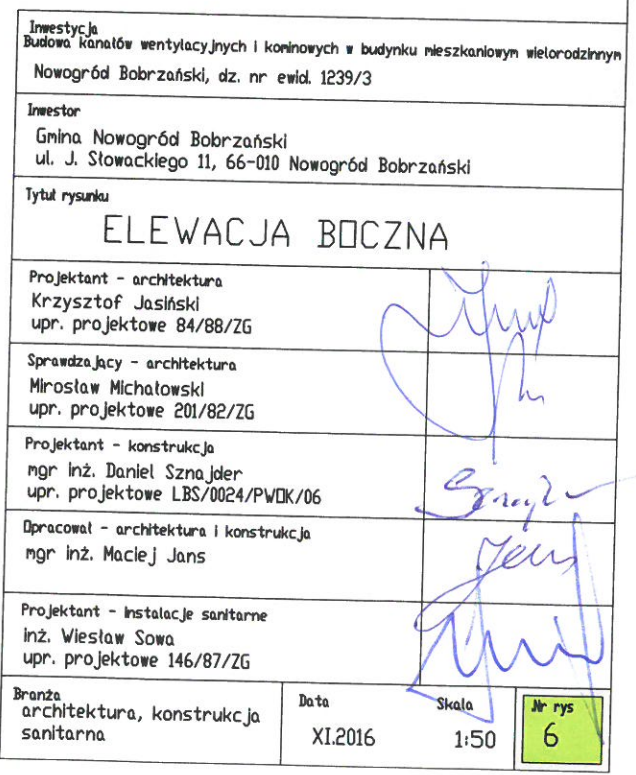 Inwestycja
Budowa kanałów wentylacyjnych i kominowych w budynku mieszkaniowym wielorodzinnym
Nowogród Bobrzański, dz. nr ewid. 1239/3
Inwestor
Gmina Nowogród Bobrzański
ul. J. Słowackiego 11, 66-010 Nowogród Bobrzański
Tytuł rysunku
ELEWACJA BOCZNA
Projektant - architektura
Krzysztof Jasiński
upr. projektowe 84/88/ZG
Sprawdzający - architektura
Mirosław Michałowski
upr. projektowe 201/82/ZG
Projektant - konstrukcja
mgr inż. Daniel Sznajder
upr. projektowe LBS/0024/PWOK/06
Opracował - architektura i konstrukcja
mgr inż. Maciej Jans
Projektant - instalacje sanitarne
inż. Wiesław Sowa
upr. projektowe 146/87/ZG
Branża
architektura, konstrukcja
sanitarna
Data
XI.2016
Skala
1:50
Nr rys
6